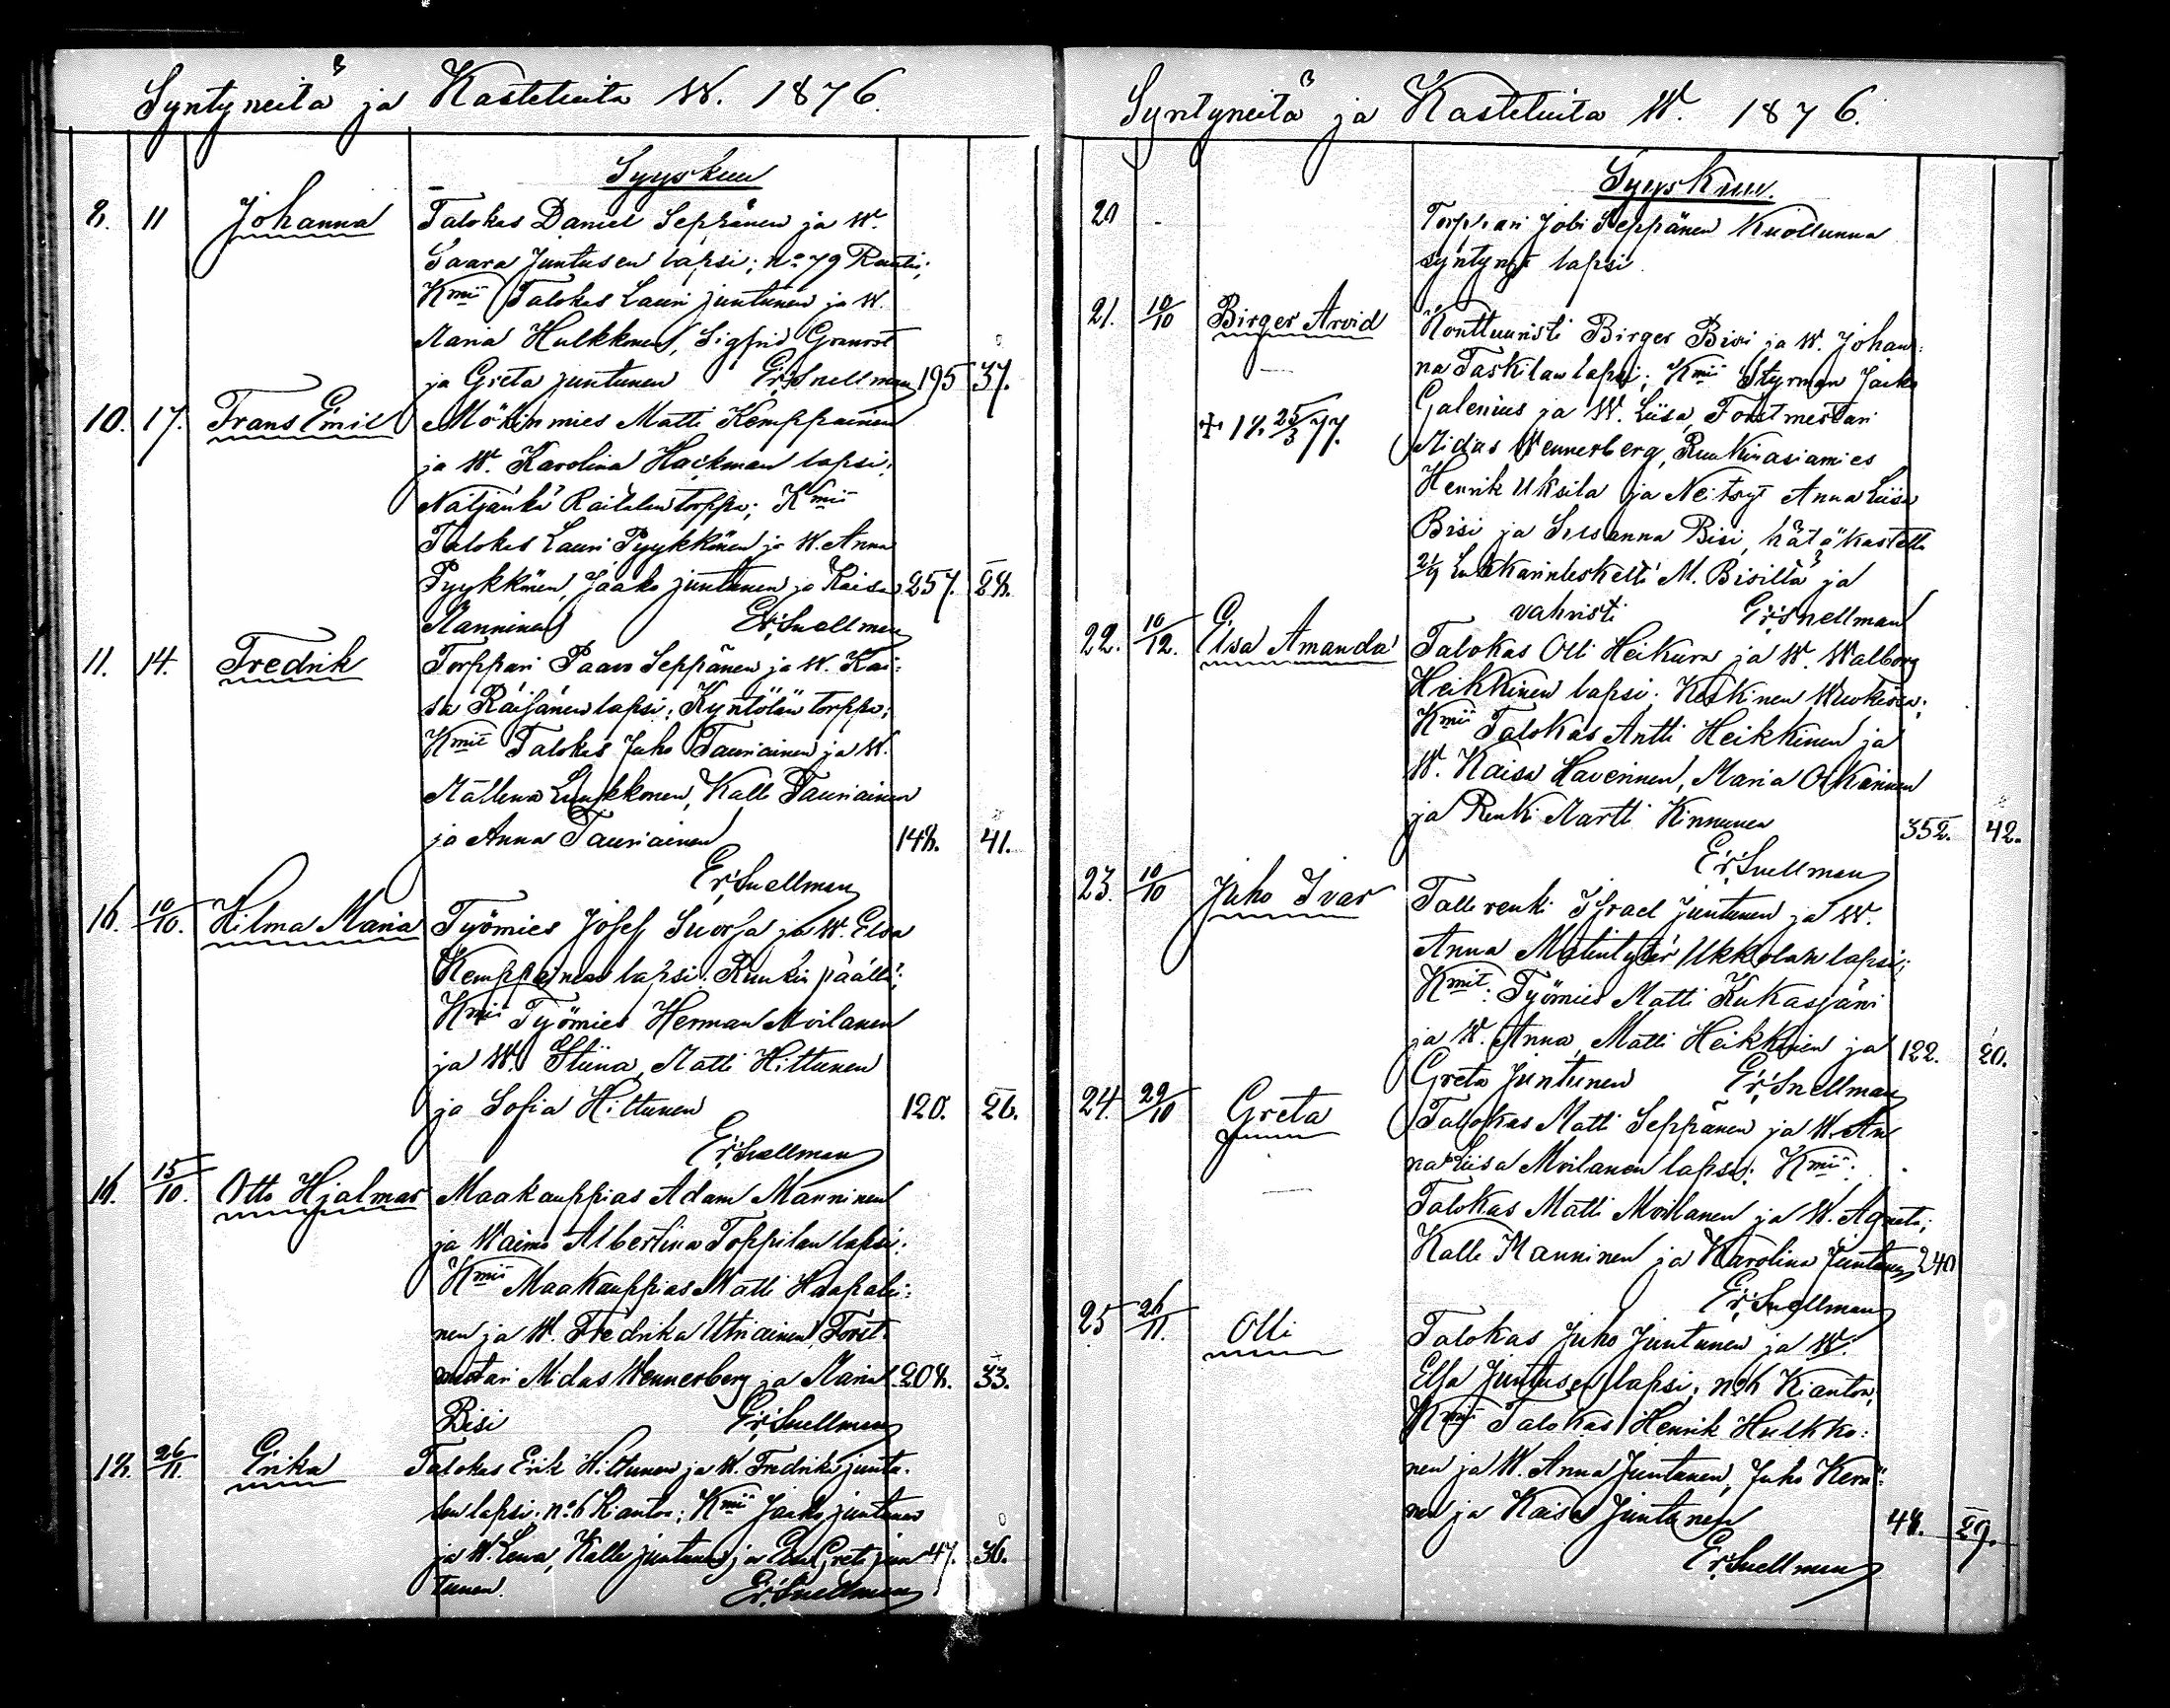 Syntyneitä ja Kastetuita W. 1876.
Syyskuu
8. 11 Johanna Talokas Daniel Seppänen ja W.
Saara Juntusen lapsi; No 79 Ruhtin.
Kmii Talokas Lauri Juntunen ja W.
Maria Hulkkonen, Sigfrid Granrot
ja Greta Juntunen Er. Snellman 195 37.
10. 17. Frans Emil Mökinmies Matti Kemppainen
ja W. Karolina Hackman lapsi;
Nätjänkä Raitalan torppa; Kmii
Talokas Lauri Pyykkönen ja W. Anna
Pyykkönen, Jaako Juntunen ja Kaisa 257. 28.
Manninen Er. Snellman
11. 14. Fredrik Torppari Paavo Seppänen ja W. Kai-
sa Räisänen lapsi; Kyntölän torppa;
Kmii Talokas Juho Tauriainen ja W.
Mallena Lukkonen, Kalle Tauriainen
ja Anna Tauriainen 148. 41.
Er. Snellman
16. 10/10. Hilma Maria Työmies Josef Suorsa ja W. Elsa
Kemppainen lapsi. Ruukin päällä;
Kmii Työmies Herman Moilanen
ja W. Stiina, Matti Hiltunen
ja Sofia Hiltunen 120. 26.
Er. Snellman
16. 15/10. Otto Hjalmar Maakauppias Adam Manninen
ja Waimo Albertina Toppilan lapsi:
Kmii Maakauppias Matti Haapalai-
nen ja W. Fredrika Utriainen, Forst-
mestari Midas Wennerberg ja Maria 208. 33.
Bisi Er. Snellman
18. 26/11. Erika Talokas Erik Hiltunen ja W. Fredrika Juntu-
sen lapsi. No 6 Kianton; Kmii Jaako Juntunen
ja W. Leena, Kalle Juntunen ja Greta Jun 47. 36.
tunen. Er. Snellman
Syntyneitä ja Kastetuita W. 1876.
Syyskuu.
20 - Torppari Jobi Seppänen Kuollunna
syntynyt lapsi
21. 10/10 Birger Arvid Konttuuristi Birger Bisi ja W. Johan-
na Taskilan lapsi; Kmii Styrman Jaako
+ 18 25/3 77. Galenius ja W. Liisa, Forstmestari
Midas Wennerberg, Ruukinasiamies
Henrik Uksila ja Neitsyt Anna Liisa
Bisi ja Susanna Bisi, hätäkastettu
21/9 Lukkarinleskeltä M. Bisiltä ja
vahvisti Er. Snellman
22. 10/12. Elsa Amanda Talokas Olli Heikura ja W. Walborg
Heikkinen lapsi. Keskinen Wuokissa;
Kmii Talokas Antti Heikkinen ja
W. Kaisa Haverinen, Maria Oikarinen
ja Renki Martti Kinnunen 352. 42.
Er. Snellman
23. 10/10 Juho Ivar Tallirenki Israel Juntunen ja W.
Anna Matintytär Ukkolan lapsi;
Kmit. Työmies Matti Kukasjäri
ja W. Anna, Matti Heikkinen ja 122. 20.
Greta Juntunen Er. Snellman
24. 29/10 Greta Talokas Matti Seppänen ja W. An
na Liisa Moilanen lapsi: Kmii:
Talokas Matti Moilanen ja W. Agneta;
Kalle Manninen ja Karolina Juntunen 240
Er. Snellman
25 26/11. Olli Talokas Juho Juntunen ja W.
Elsa Juntusen lapsi; No 6 Kianton;
Kmii Talokas Henrik Hulkko-
nen ja W. Anna Juntunen, Juho Kerä-
nen ja Kaisa Juntunen 48. 29.
Er. Snellman